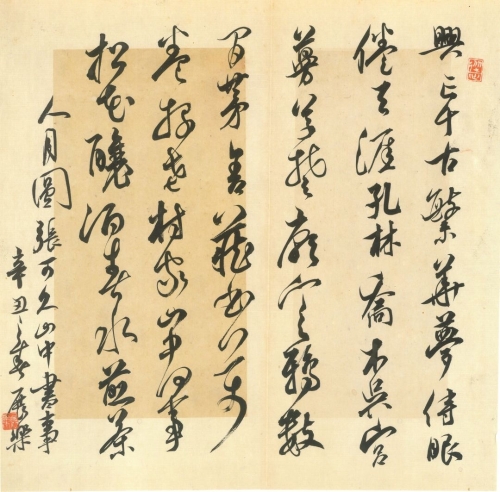 興亡千古繁華夢詩眼
倦天涯孔林喬木吳宮
蔓草楚廟寒鴉數
間茅舍藏書萬
卷投老村家山中何事
松花釀酒春水煎茶
人月圓張可久山中書事
辛丑之春